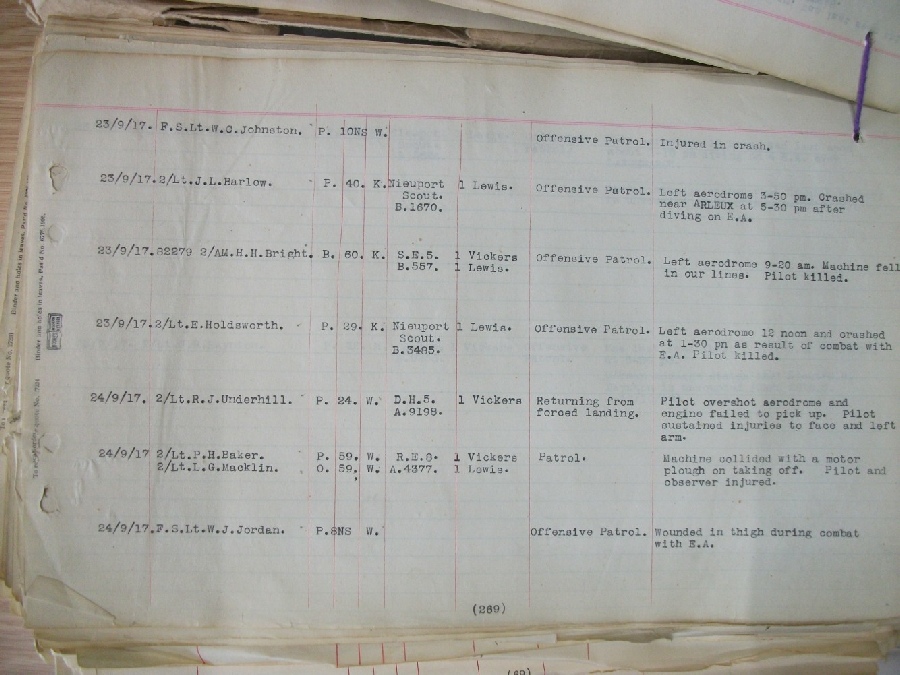 23/9/17. F.S.Lt.W.C.Johnston. P. 10NS W. Offensive Patrol. Injured in crash.
23/9/17. 2/Lt.J.L.Barlow. P. 40. K. Nieuport 1 Lewis. Offensive Patrol. Left aerodrome 3-50 pm. Crashed
Scout. near ARLEUX at 5-30 pm after
B.1670. diving on E.A.
23/9/17. 82279 2/AM.H.H.Bright. P. 60. K. S.E.5. 1 Vickers Offensive Patrol. Left aerodrome 9-20 am. Machine fell
B.557. 1 Lewis. in our lines. Pilot killed.
23/9/17. 2/Lt.E.Holdsworth. P. 29. K. Nieuport 1 Lewis. Offensive Patrol. Left aerodrome 12 noon and crashed
Scout. at 1-30 pm as result of combat with
B.3485. E.A. Pilot killed.
24/9/17. 2/Lt.R.J.Underhill. P. 24. W. D.H.5. 1 Vickers Returning from Pilot overshot aerodrome and
A.9198. forced landing. engine failed to pick up. Pilot
sustained injuries to face and left
arm.
24/9/17 2/Lt.P.H.Baker. P. 59. W. R.E.8. 1 Vickers Patrol. Machine collided with a motor
2/Lt.L.G.Macklin. O. 59. W. A.4377. 1 Lewis. plough on taking off. Pilot and
observer injured.
24/9/17. F.S.Lt.W.J.Jordan. P. 8NS W. Offensive Patrol. Wounded in thigh during combat
with E.A.
(269)